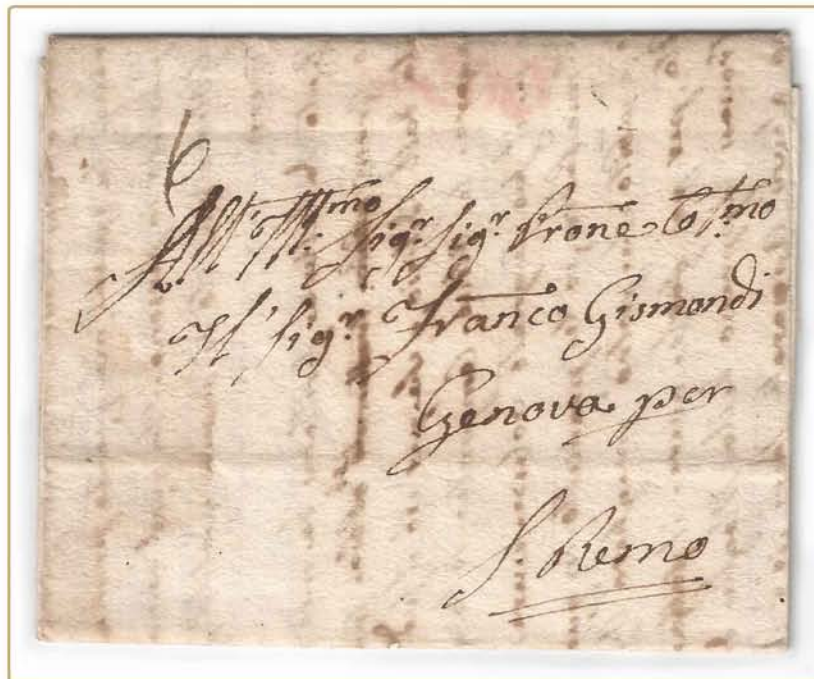 6
All' Ill.mo Sig.r Sig.r Prone Col.mo
Il Sig.r Franco Gismondi
Genova per
S. Remo